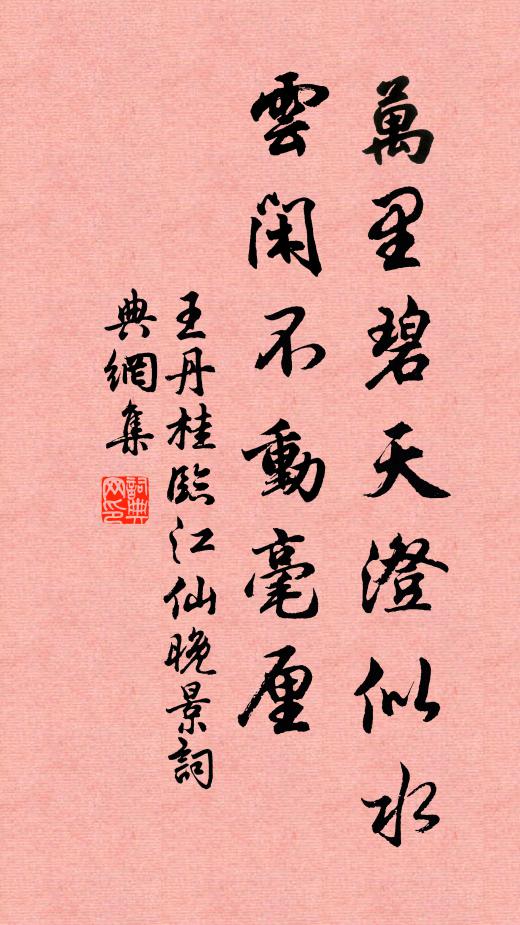 萬里碧天澄似水
雲閑不動毫厘
王丹桂臨江仙晚景詞
典網集
詞典網印